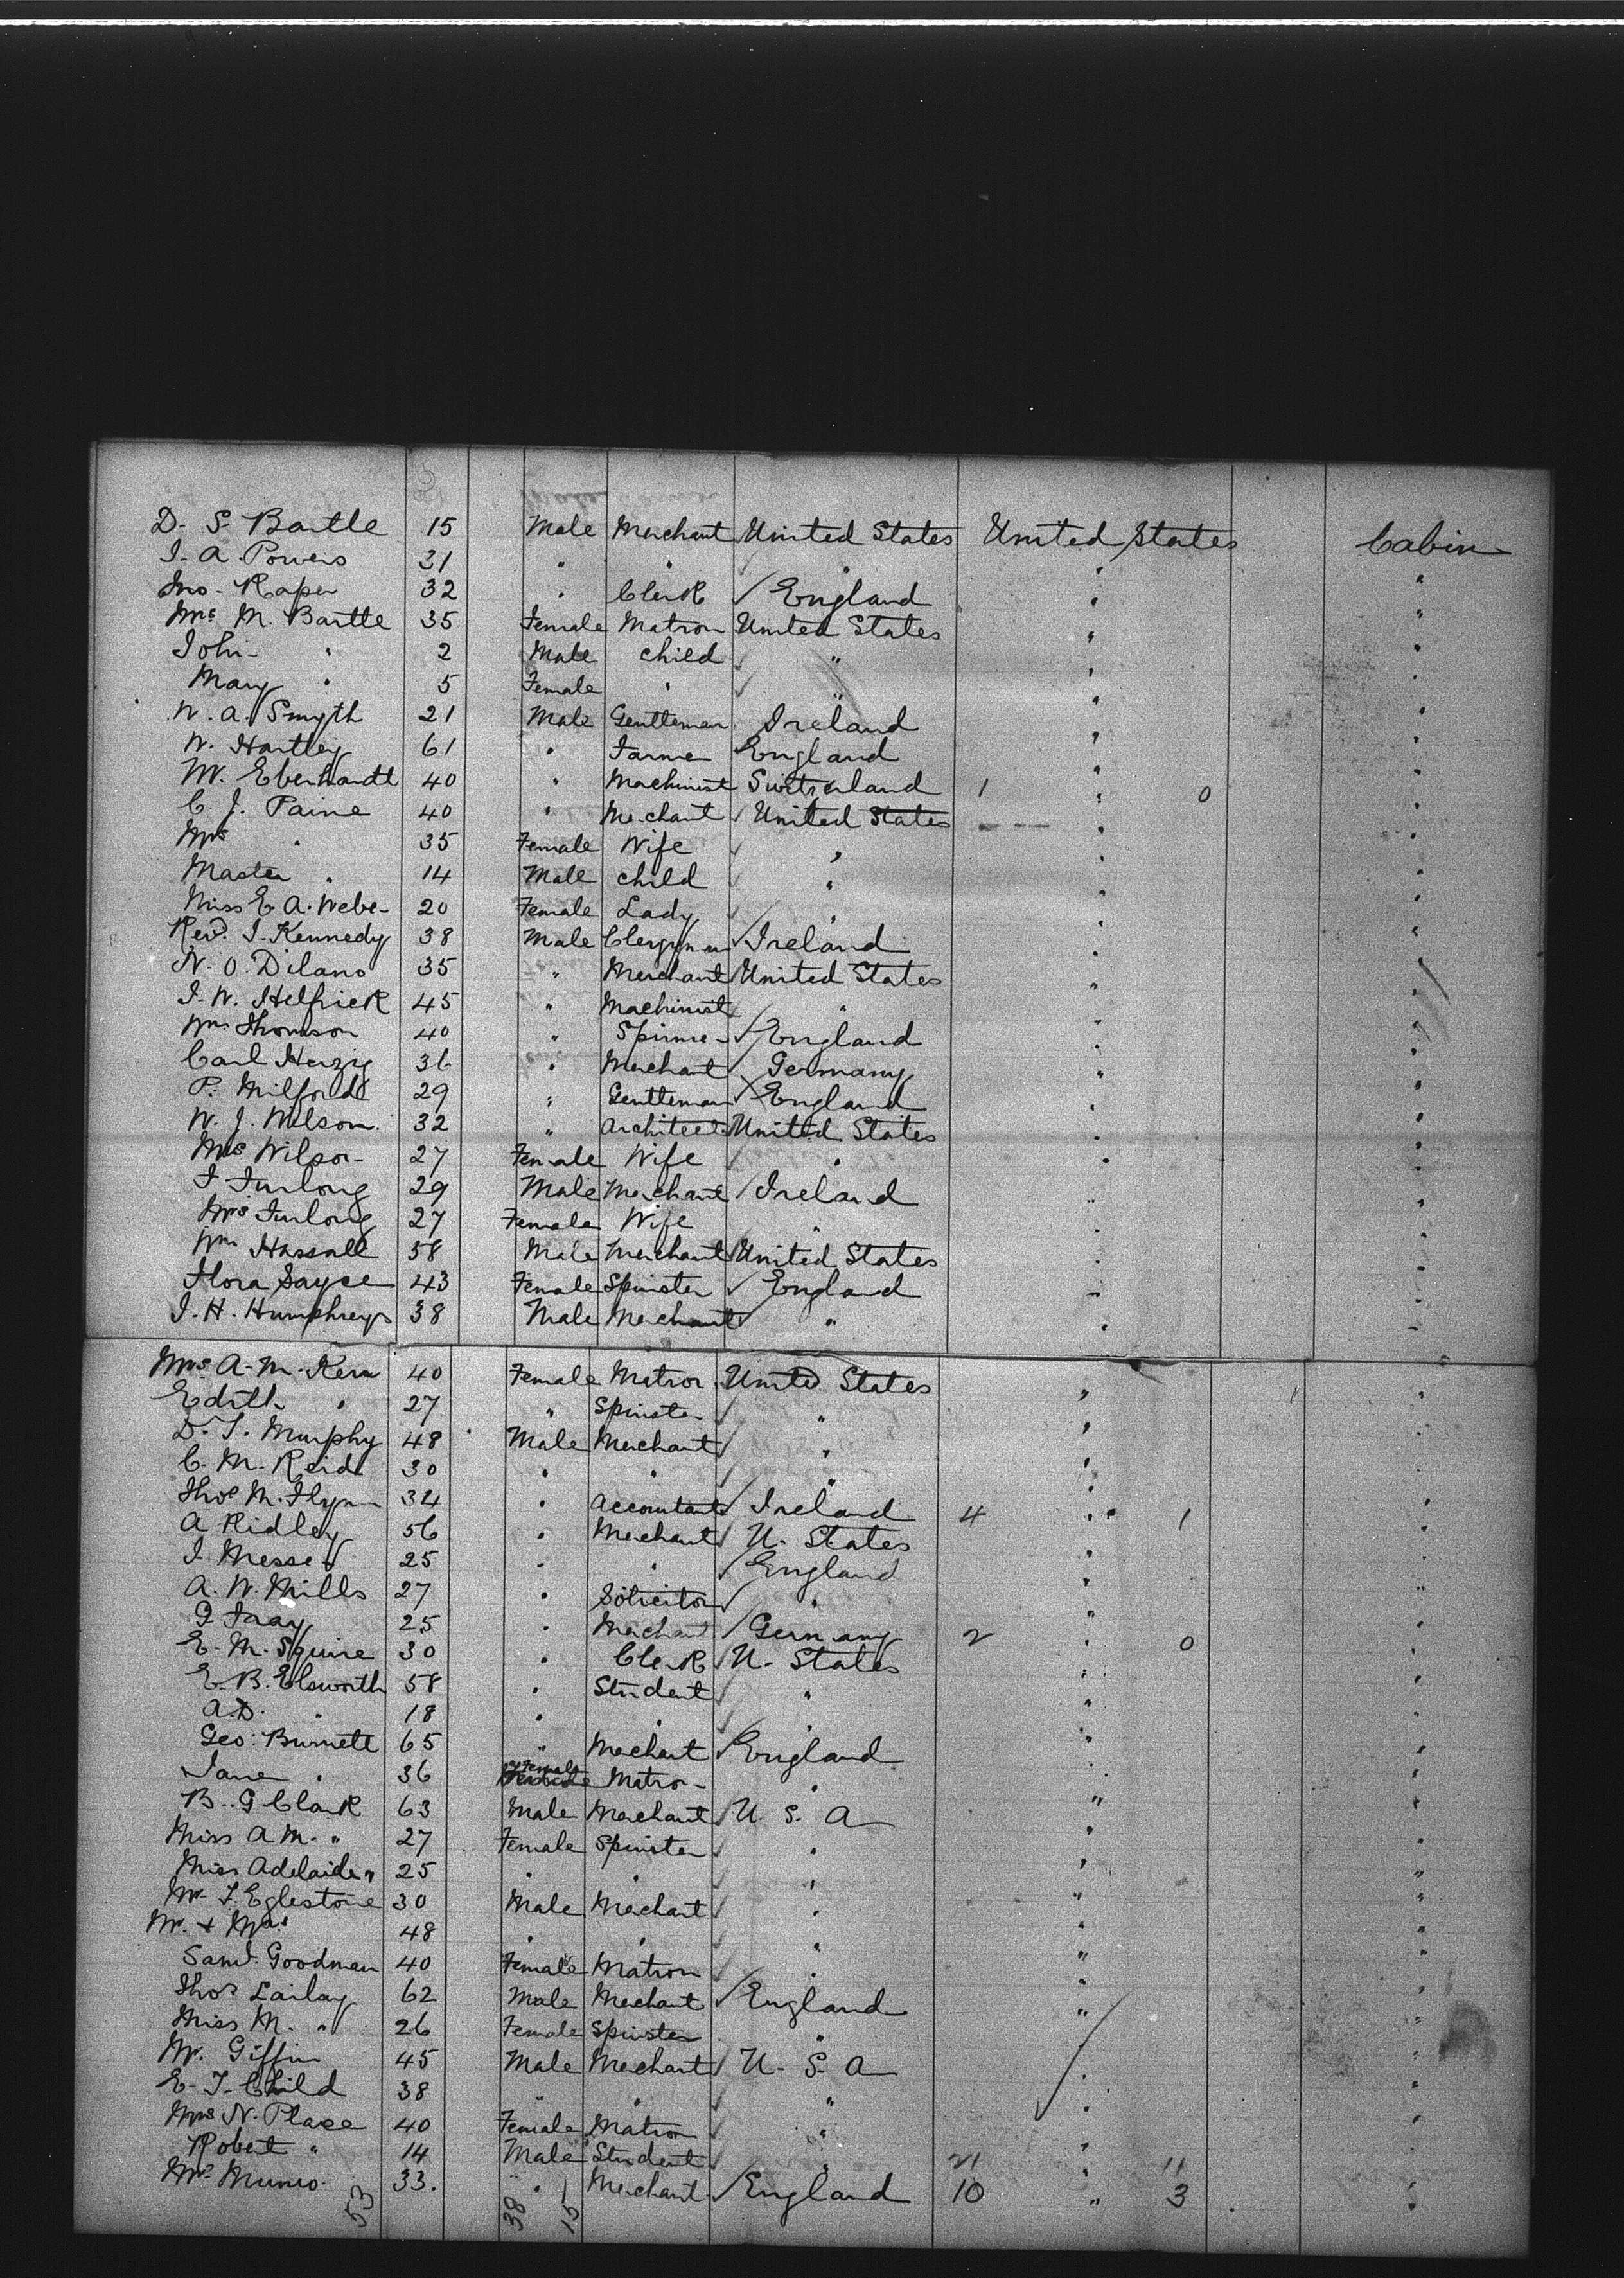 D. S. Bartle 15 Male Merchant United States United States Cabin
J. A. Powers 31 " " " " "
Jno. Raper 32 " Clerk England " "
Mrs M. Bartle 35 Female Matron United States " "
John " 2 Male child " " "
Mary " 5 Female " " " "
W. A. Smyth 21 Male Gentleman Ireland " "
W. Hartley 61 " Farmer England " "
W. Eberhardt 40 " Machinist Switzerland 1 " 0 "
C. J. Paine 40 " Merchant United States " "
Mrs " 35 Female Wife " " "
Master " 14 Male child " " "
Miss E. A. Weber 20 Female Lady " " "
Revd. J. Kennedy 38 Male Clergyman Ireland " "
N. O. Dilano 35 " Merchant United States " "
J. W. Helfrick 45 " Machinist " " "
Wm Thomson 40 " Spinner England " "
Carl Herzig 36 " Merchant Germany " "
P. Milford 29 " Gentleman England " "
W. J. Wilson 32 " Architect United States " "
Mrs Wilson 27 Female Wife " " "
F Furlong 29 Male Merchant Ireland " "
Mrs Furlong 27 Female Wife " " "
Wm Hassall 58 Male Merchant United States " "
Flora Sayce 43 Female Spinster England " "
J. H. Humphreys 38 Male Merchant " " "
Mrs A. M. Kerr 40 Female Matron United States " "
Edith " 27 " Spinster " " "
D. T. Murphy 48 Male Merchant " " "
C. M. Reid 30 " " " " "
Thos M. Flynn 34 " Accountant Ireland 4 " 1 "
A Ridley 56 " Merchant U. States " "
J. Messer 25 " " England " "
A. W. Mills 27 " Solicitor " " "
G Fray 25 " Merchant Germany 2 " 0 "
E. M. Squire 30 " Clerk U. States " "
E. B. Elsworth 58 " Student " " "
A.D. " 18 " " " " "
Geo: Burnett 65 " Merchant England " "
Jane " 36 Female Matron " " "
B. G Clark 63 Male Merchant U. S. A " "
Miss A M. " 27 Female Spinster " " "
Miss Adelaide " 25 " " " " "
Mr. F. Eglestone 30 Male Merchant " " "
Mr. & Mrs 48 " " " " "
Saml. Goodman 40 Female Matron " " "
Thos Lailay 62 Male Merchant England " "
Miss M. " 26 Female Spinster " " "
Mr. Giffin 45 Male Merchant U. S. A " "
E. T. Child 38 " " " " "
Mrs N. Place 40 Female Matron " " "
Robert " 14 Male Student " 21 " 11 "
Mr Munro 33. " Merchant England 10 " 3 "
53 38 15